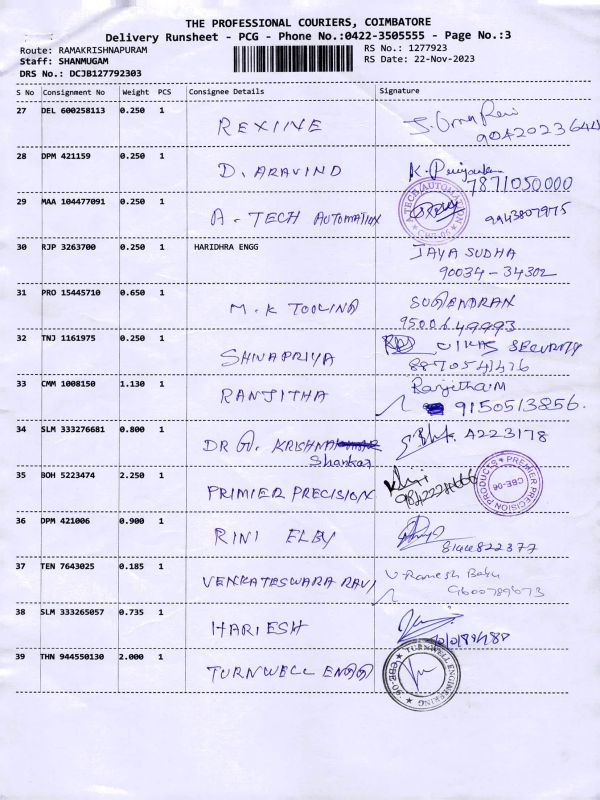 THE PROFESSIONAL COURIERS, COIMBATORE
Delivery Runsheet - PCG - Phone No.:0422-3505555 - Page No.:3
Route: RAMAKRISHNAPURAM RS No.: 1277923
Staff: SHANMUGAM RS Date: 22-Nov-2023
DRS No.: DCJB127792303
S No Consignment No Weight PCS Consignee Details Signature
27 DEL 600258113 0.250 1 REXINE
28 DPM 421159 0.250 1 D. ARAVIND K. Priyanka
7871050000
29 MAA 104477091 0.250 1 A-TECH AUTOMATION 9943807975
30 RJP 3263700 0.250 1 HARIDHRA ENGG JAYA SUDHA
90034-34302
31 PRO 15445710 0.650 1 M.K TOOLING SUGENDRAN
9500649993
32 TNJ 1161975 0.250 1 SHIVAPRIYA VIKAS SECURITY
8870541476
33 CMM 1008150 1.130 1 RANJITHA Ranjitha M
9150513856.
34 SLM 333276681 0.800 1 DR GV. KRISHNA A223178
Shankar
35 BOH 5223474 2.250 1 PRIMIER PRECISION
PREMIER PRECISION PRODUCTS CBE-06
36 DPM 421006 0.900 1 RINI ELBY 8144822377
37 TEN 7643025 0.185 1 VENKATESWARA RAVI V. Ramesh Babu
9600789673
38 SLM 333265057 0.735 1 HARIESH
39 THN 944550130 2.000 1 TURNWELL ENGG TURNWELL ENGINEERING